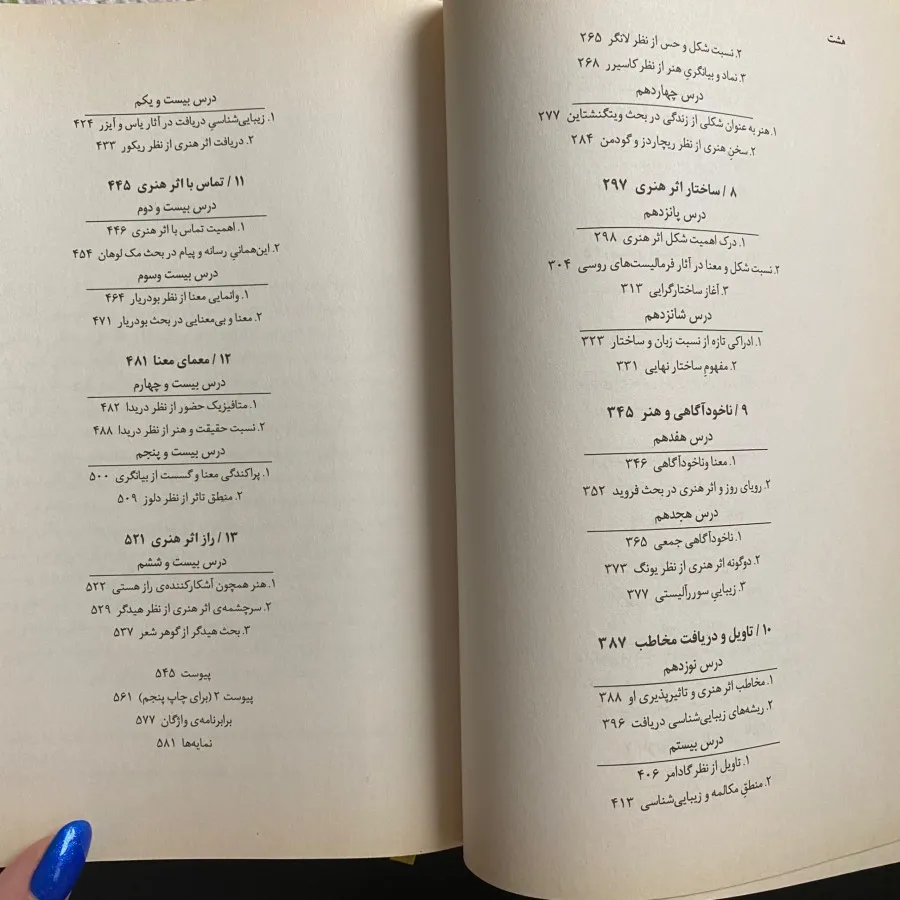 هشت
۲. نسبت شکل و حس از نظر لانگر ۲۶۵
۳. نماد و بیانگریِ هنر از نظر کاسیرر ۲۶۸
درس چهاردهم
۱. هنر به عنوان شکلی از زندگی در بحث ویتگنشتاین ۲۷۷
۲. سخن هنری از نظر ریچاردز و گودمن ۲۸۴
۸ / ساختار اثر هنری ۲۹۷
درس پانزدهم
۱. درک اهمیت شکل اثر هنری ۲۹۸
۲. نسبت شکل و معنا در آثار فرمالیست‌های روسی ۳۰۴
۳. آغاز ساختارگرایی ۳۱۳
درس شانزدهم
۱. ادراکی تازه از نسبت زبان و ساختار ۳۲۳
۲. مفهومِ ساختار نهایی ۳۳۱
۹ / ناخودآگاهی و هنر ۳۴۵
درس هفدهم
۱. معنا وناخودآگاهی ۳۴۶
۲. رویای روز و اثر هنری در بحث فروید ۳۵۲
درس هجدهم
۱. ناخودآگاهی جمعی ۳۶۵
۲. دوگونه اثر هنری از نظر یونگ ۳۷۳
۳. زیباییِ سوررآلیستی ۳۷۷
۱۰ / تاویل و دریافت مخاطب ۳۸۷
درس نوزدهم
۱. مخاطب اثر هنری و تاثیرپذیری او ۳۸۸
۲. ریشه‌های زیبایی‌شناسی دریافت ۳۹۶
درس بیستم
۱. تاویل از نظر گادامر ۴۰۶
۲. منطقِ مکالمه و زیبایی‌شناسی ۴۱۳
درس بیست و یکم
۱. زیبایی‌شناسیِ دریافت در آثار یاس و آیزر ۴۲۴
۲. دریافت اثر هنری از نظر ریکور ۴۳۳
۱۱ / تماس با اثر هنری ۴۴۵
درس بیست و دوم
۱. اهمیت تماس با اثر هنری ۴۴۶
۲. این‌همانیِ رسانه و پیام در بحث مک لوهان ۴۵۴
درس بیست وسوم
۱. وانمایی معنا از نظر بودریار ۴۶۴
۲. معنا و بی‌معنایی در بحث بودریار ۴۷۱
۱۲ / معمای معنا ۴۸۱
درس بیست و چهارم
۱. متافیزیک حضور از نظر دریدا ۴۸۲
۲. نسبت حقیقت و هنر از نظر دریدا ۴۸۸
درس بیست و پنجم
۱. پراکندگی معنا و گسست از بیانگری ۵۰۰
۲. منطق تاثر از نظر دلوز ۵۰۹
۱۳ / راز اثر هنری ۵۲۱
درس بیست و ششم
۱. هنر همچون آشکارکننده‌ی راز هستی ۵۲۲
۲. سرچشمه‌ی اثر هنری از نظر هیدگر ۵۲۹
۳. بحث هیدگر از گوهر شعر ۵۳۷
پیوست ۵۴۵
پیوست ۲ (برای چاپ پنجم) ۵۶۱
برابرنامه‌ی واژگان ۵۷۷
نمایه‌ها ۵۸۱